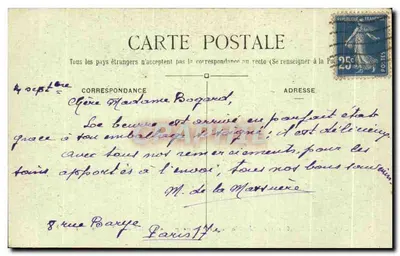 CARTE POSTALE
Tous les pays étrangers n'acceptent pas la correspondance au recto (Se renseigner à la Po
CORRESPONDANCE
ADRESSE
25c
POSTES
4 septbre
Chère Madame Bogard,
Le beurre est arrivé en parfait état
grace à ton emballage si soigné; il est délicieux
avec tous nos remerciements pour les
soins apportés à l'envoi, tous nos bons souvenirs
M. de la
8 rue Barye
Paris 17e